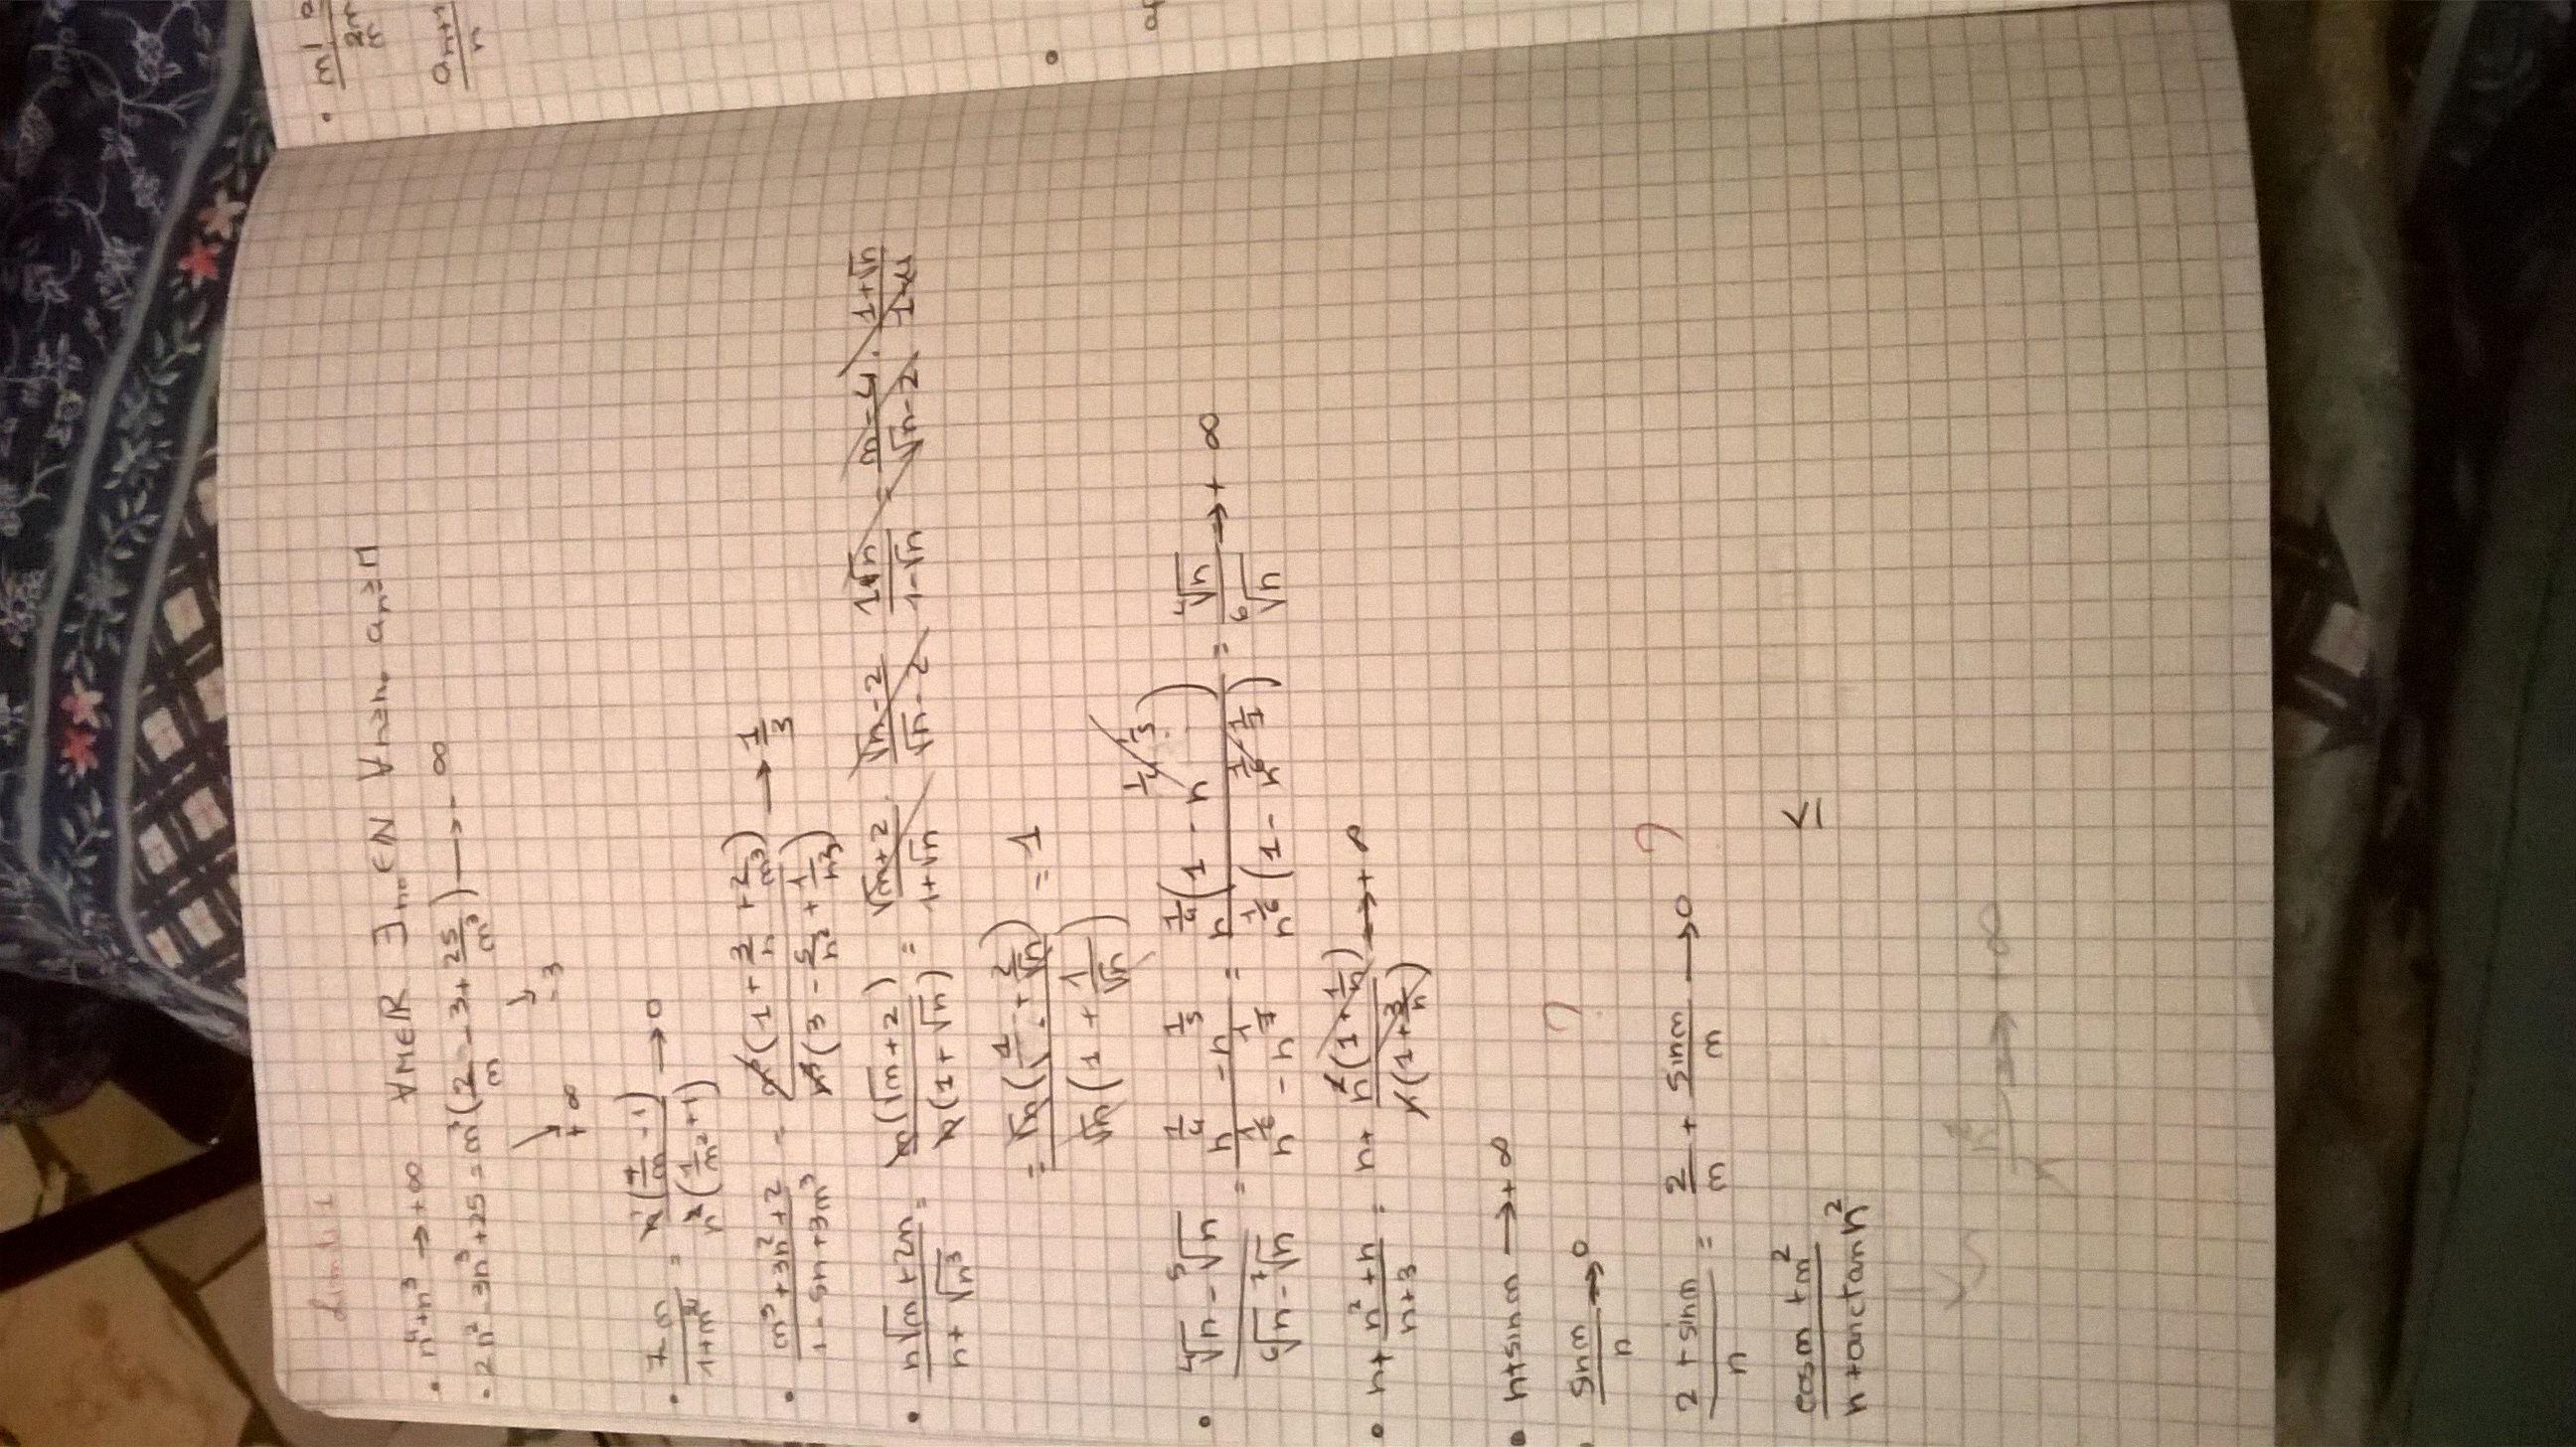 Limiti
• n⁴+n³ → +∞ ∀M∈ℝ ∃n₀∈ℕ ∀n≥n₀ aₙ≥M
• 2n²-3n³+25 = n³(2/n -3 + 25/n³) → -∞
↘ +∞ ↘ -3
• 7-n/1+n² = n(7/n -1)/n²(1/n² +1) → 0
• n³+3n²+2/1-5n+3n³ = n³(1+3/n+2/n³)/n³(3-5/n²+1/n³) → 1/3
• n√n+2n/n+√n³ = n(√n+2)/n(1+√n) = √n+2/1+√n · √n-2/√n-2 · 1+√n/1-√n = n-4/√n-2 · 1+√n/1-n
= √n(1+2/√n)/√n(1+1/√n) = 1
• ⁴√n-⁵√n/⁶√n-⁷√n = n^1/4 - n^1/5/n^1/6 - n^1/7 = n^1/4(1-n )/n^1/6(1-n ) = ⁴√n/⁶√n → +∞
• n+ n²+n/n+3 = n+ n²(1+1/n)/n(1+3/n) → +∞
• n+sin n → +∞
• sin n/n → 0 ?
2+sin n/n = 2/n + sin n/n → 0 ?
cos n +n²/n+arctan n² ≤
→ +∞
• n!
2n
n
aₙ₊₁
n
•